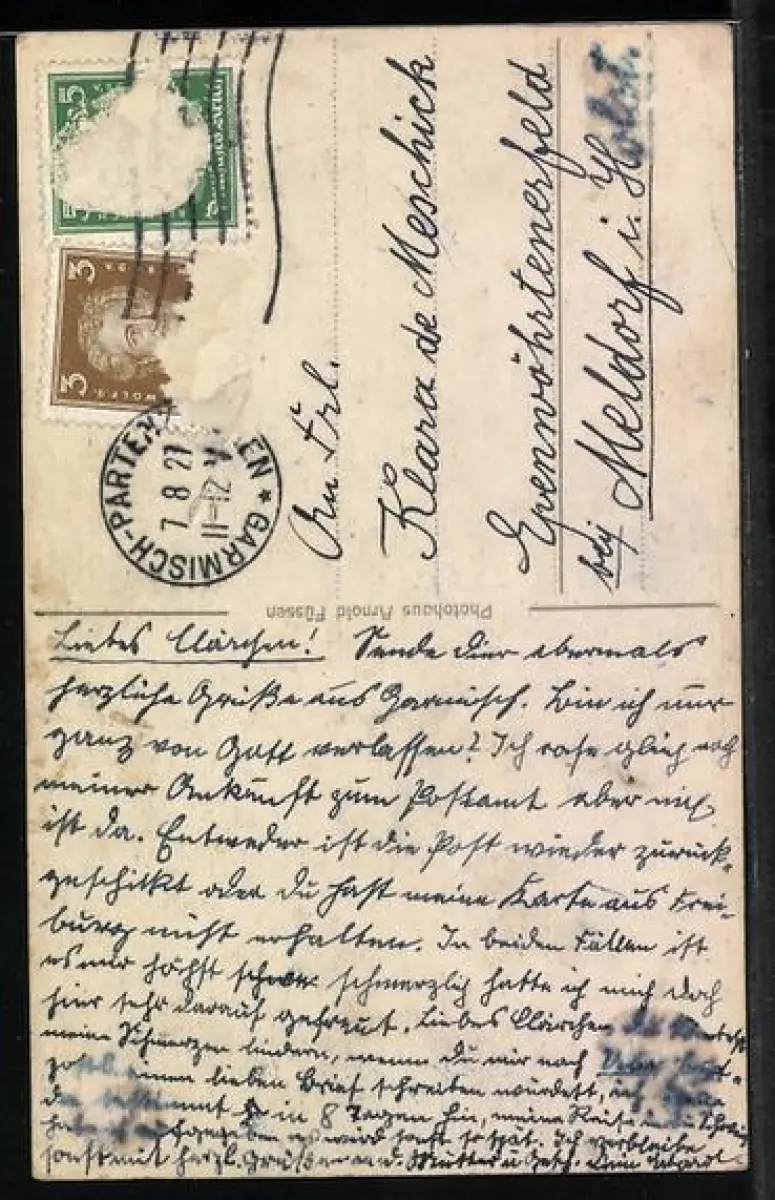 5
3
3
WOLFG.
GARMISCH-PARTENKIRCHEN
7 8 27
11-12
An Frl.
Klara de Meschick
Epenwöhrtenerfeld
bei Meldorf i. Holst.
Photohaus Arnold Füssen
Liebes Clärchen! Sende dier abermals
herzliche Grüße aus Garmisch. Bin ich nur
ganz von Gott verlassen? Ich rase gleich nach
meiner Ankunft zum Postamt aber nix
ist da. Entweder ist die Post wieder zurück-
geschikt oder du hast meine Karte aus Frei-
burg nicht erhalten. In beiden Fällen ist
es mir höchst schmerzlich hatte ich mich doch
hier sehr darauf gefreut. Liebes Clärchen du
meine Schmerzen lindern, wenn du mir nach
einen lieben Brief schreiben würdest, ich
bestimmt in 8 Tagen hin, meine Reise in
aufgegeben es wird sonst so spät. Ich verbleibe
sonst mit herzl. Grüßen an d. Mutter u. Gesch. Dein